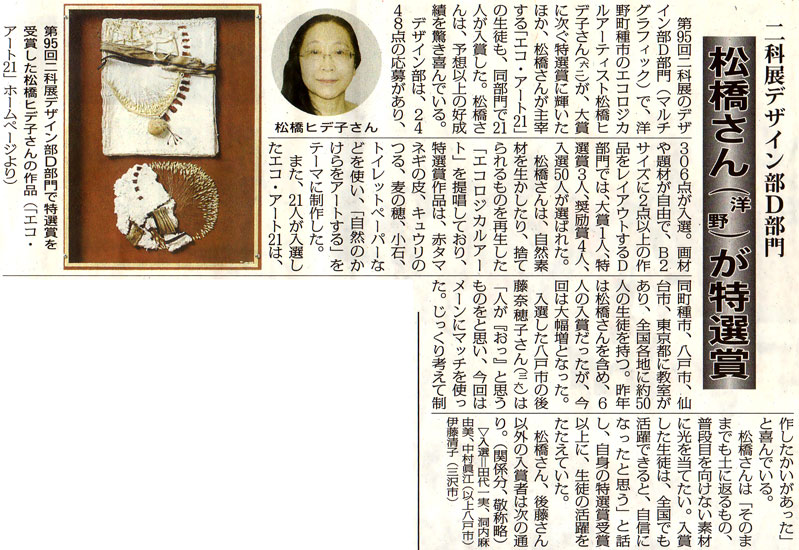 二科展デザイン部D部門
松橋さん(洋野)が特選賞
第95回二科展のデザ
イン部D部門(マルチ
グラフィック)で、洋
野町種市のエコロジカ
ルアーティスト松橋ヒ
デ子さん(六二)が、大賞
に次ぐ特選賞に輝いた
ほか、松橋さんが主宰
する「エコ・アート21」
の生徒も、同部門で21
人が入賞した。松橋さ
んは、予想以上の好成
績を驚き喜んでいる。
デザイン部は、24
48点の応募があり、
306点が入選。画材
や題材が自由で、B2
サイズに2点以上の作
品をレイアウトするD
部門では、大賞1人、特
選賞3人、奨励賞4人、
入選50人が選ばれた。
松橋さんは、自然素
材を生かしたり、捨て
られるものを再生した
「エコロジカルアー
ト」を提唱しており、
特選賞作品は、赤タマ
ネギの皮、キュウリの
つる、麦の穂、小石、
トイレットペーパーな
どを使い、「自然のか
けらをアートする」を
テーマに制作した。
また、21人が入選し
たエコ・アート21は、
同町種市、八戸市、仙
台市、東京都に教室が
あり、全国各地に約50
人の生徒を持つ。昨年
は松橋さんを含め、6
人の入賞だったが、今
回は大幅増となった。
入選した八戸市の後
藤奈穂子さん(三六)は
「人が『おっ』と思う
ものをと思い、今回は
メーンにマッチを使っ
た。じっくり考えて制
作したかいがあった」
と喜んでいる。
松橋さんは「そのま
までも土に返るもの、
普段目を向けない素材
に光を当てたい。入賞
した生徒は、全国でも
活躍できると、自信に
なったと思う」と話
し、自身の特選賞受賞
以上に、生徒の活躍を
たたえていた。
松橋さん、後藤さん
以外の入賞者は次の通
り。(関係分、敬称略)
▽入選=田代一実、洞内麻
由美、中村眞江(以上八戸市)
伊藤清子(三沢市)
松橋ヒデ子さん
第95回二科展デザイン部D部門で特選賞を
受賞した松橋ヒデ子さんの作品(「エコ・
アート21」ホームページより)